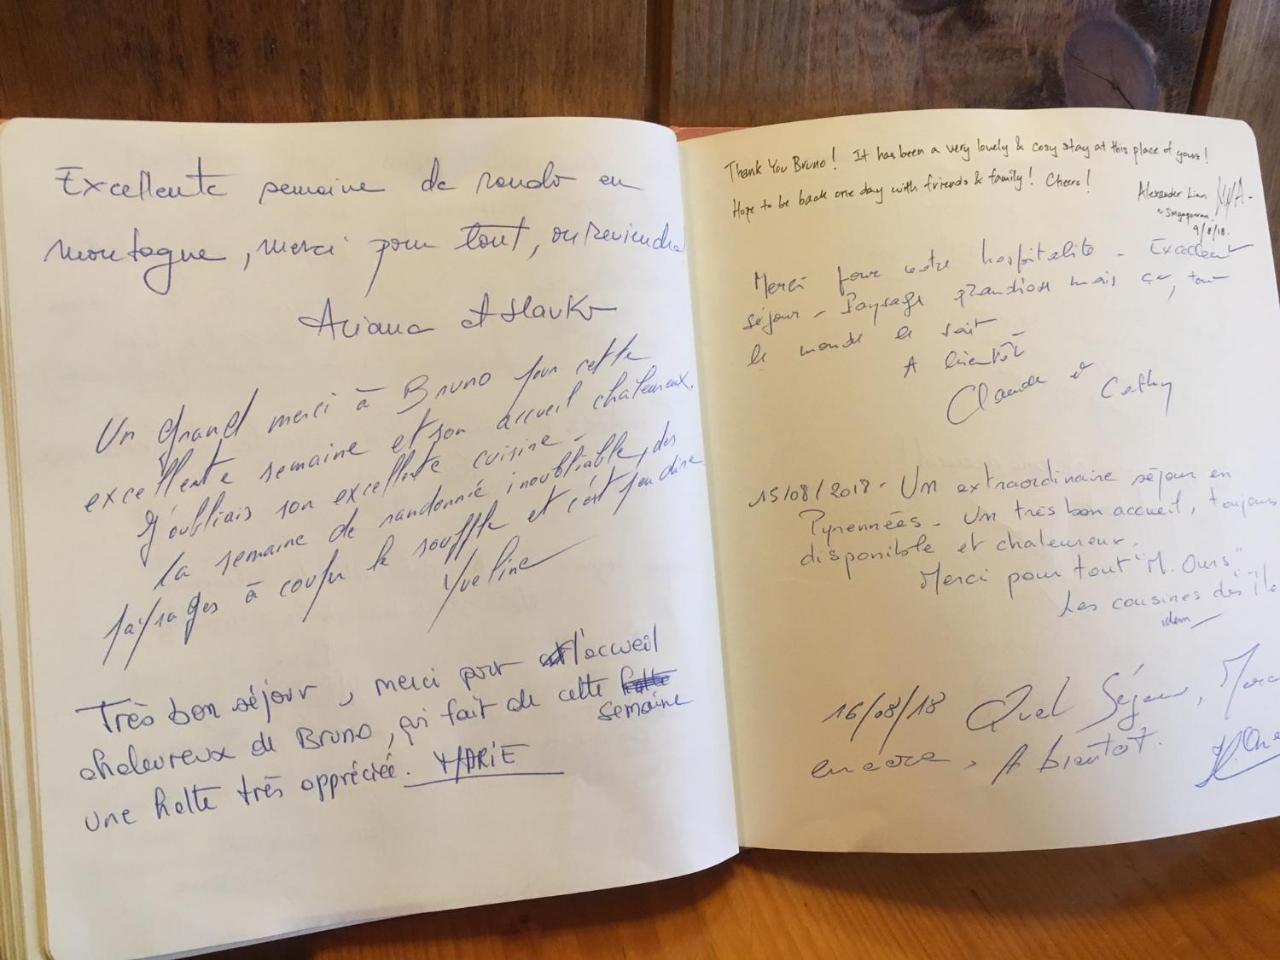 Excellente semaine de rando en
montagne, merci pour tout, on reviendra
Ariana et
Un grand merci à Bruno pour cette
excellente semaine et son accueil chaleureux.
J'oubliais son excellente cuisine -
La semaine de randonnée inoubliable, des
paysages à couper le souffle et c'est peu dire
Yveline
Très bon séjour, merci pour l'accueil
chaleureux de Bruno, qui fait de cette
semaine
une halte très appréciée. MARIE
Thank You Bruno! It has been a very lovely & cosy stay at this place of yours!
Hope to be back one day with friends & family! Cheers!
Alexander Lian
Singaporean
9/8/18.
Merci pour votre hospitalité - Excellent
séjour - Paysage grandiose mais ça, tout
le monde le sait -
A bientôt
Claude et Cathy
15/08/2018 - Un extraordinaire séjour en
Pyrennées - Un très bon accueil, toujours
disponible et chaleureux.
Merci pour tout "M. Ours"
Les cousines des île
16/08/18 Quel Séjour, Merci
encore, A bientôt.